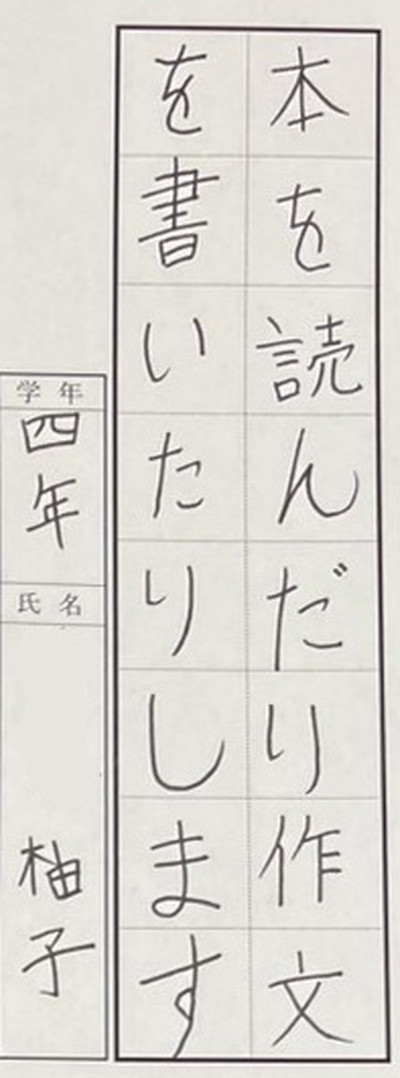 本を読んだり作文
を書いたりします
学年
四年
氏名
柚子